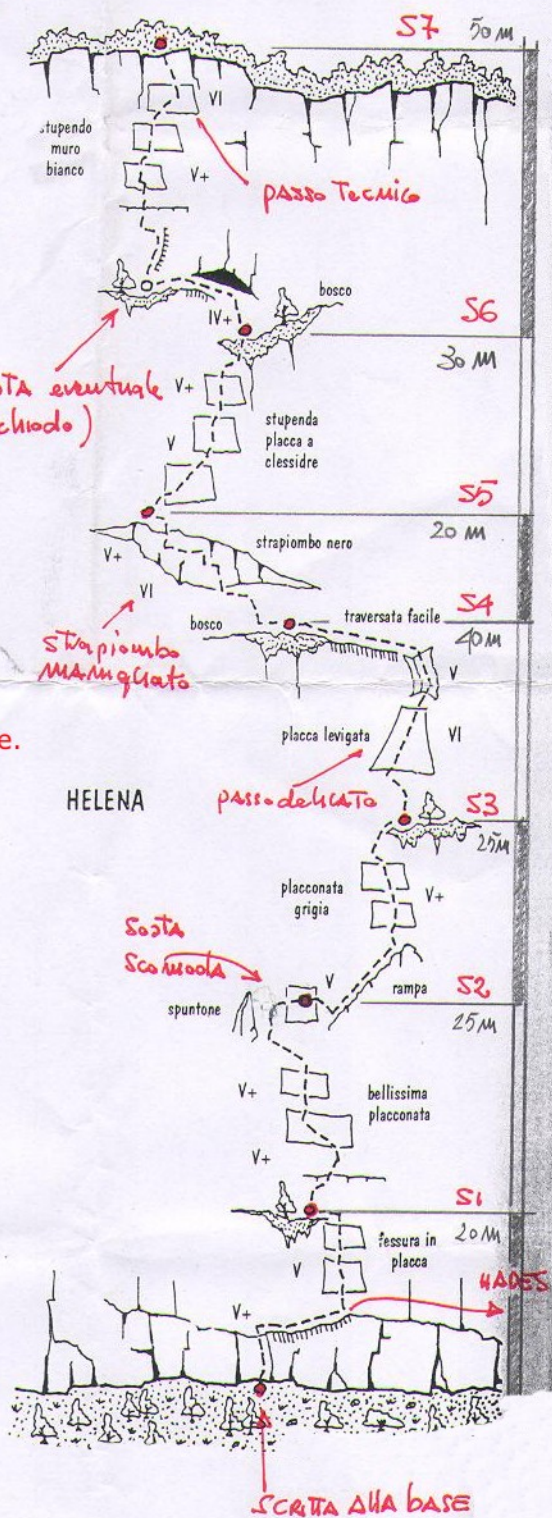 S7 50 M
VI
stupendo
muro
bianco
V+
passo Tecnico
bosco
IV+
S6
30 M
eventuale
chiodo)
V+
stupenda
placca a
clessidre
V
S5
20 M
strapiombo nero
V+
VI
S4
bosco
traversata facile
40 M
strapiombo
MANIGLIATO
V
placca levigata
VI
e.
HELENA
passo delicato
S3
25 M
placconata
grigia
V+
SOSTA
SCOMODA
V
rampa
S2
spuntone
25 M
V+
bellissima
placconata
V+
S1
20 M
fessura in
placca
V
HADES
V+
SCRITTA ALLA BASE